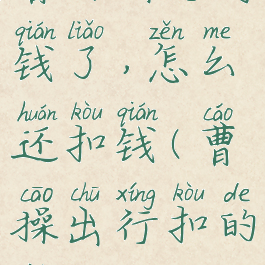 qián liǎo zěn me
钱了,怎么
huán kòu qián cáo
还扣钱(曹
cāo chū xíng kòu de
操出行扣的